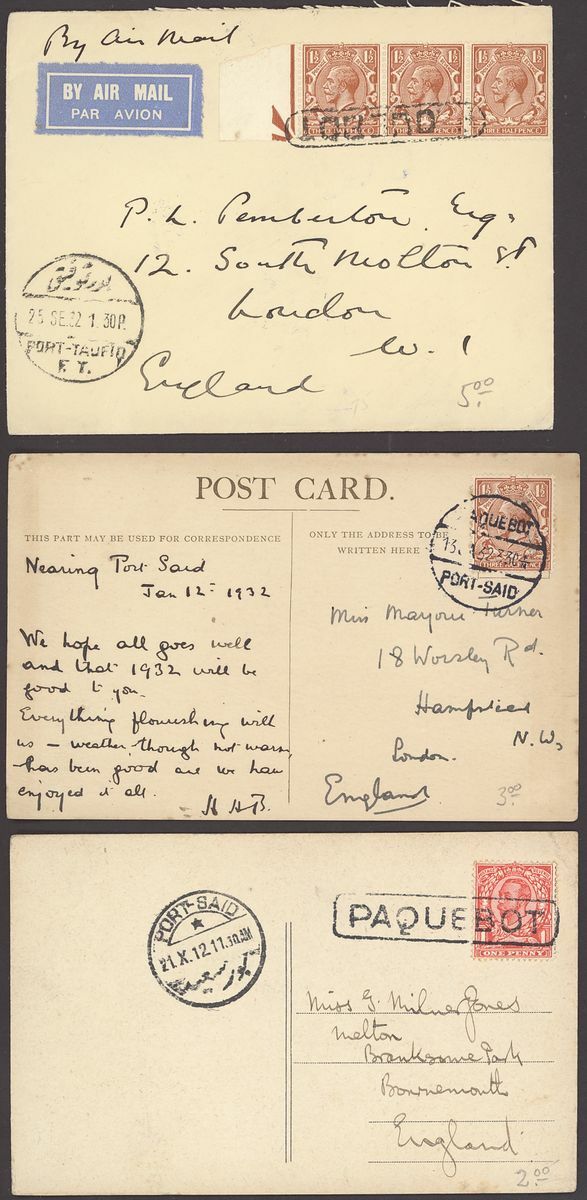 By Air Mail
BY AIR MAIL
PAR AVION
1½ 1½ 1½ 1½ 1½ 1½
THREE HALF PENCE THREE HALF PENCE
P. L. Pemberton Esq
12. South Molton St
London
W. 1
England
بور توفيق
25 SE.32 1.30P.
PORT-TAUFIQ
F. T.
5.00
POST CARD.
THIS PART MAY BE USED FOR CORRESPONDENCE
ONLY THE ADDRESS TO BE
WRITTEN HERE
1½
PAQUEBOT
PORT-SAID
Nearing Port Said
Jan 12th 1932
We hope all goes well
and that 1932 will be
good to you.
Everything flourishing with
us – weather, though not warm,
has been good and we have
enjoyed it all.
H H B.
Miss Marjorie Turner
18 Worsley Rd.
Hampstead
N.W.3
London.
England
3.00
PORT-SAID
21.X.12.11.30AM
بور سعيد
PAQUEBOT
ONE PENNY
Miss G. Milner Jones
Melton
Branksome Park
Bournemouth
England
2.00